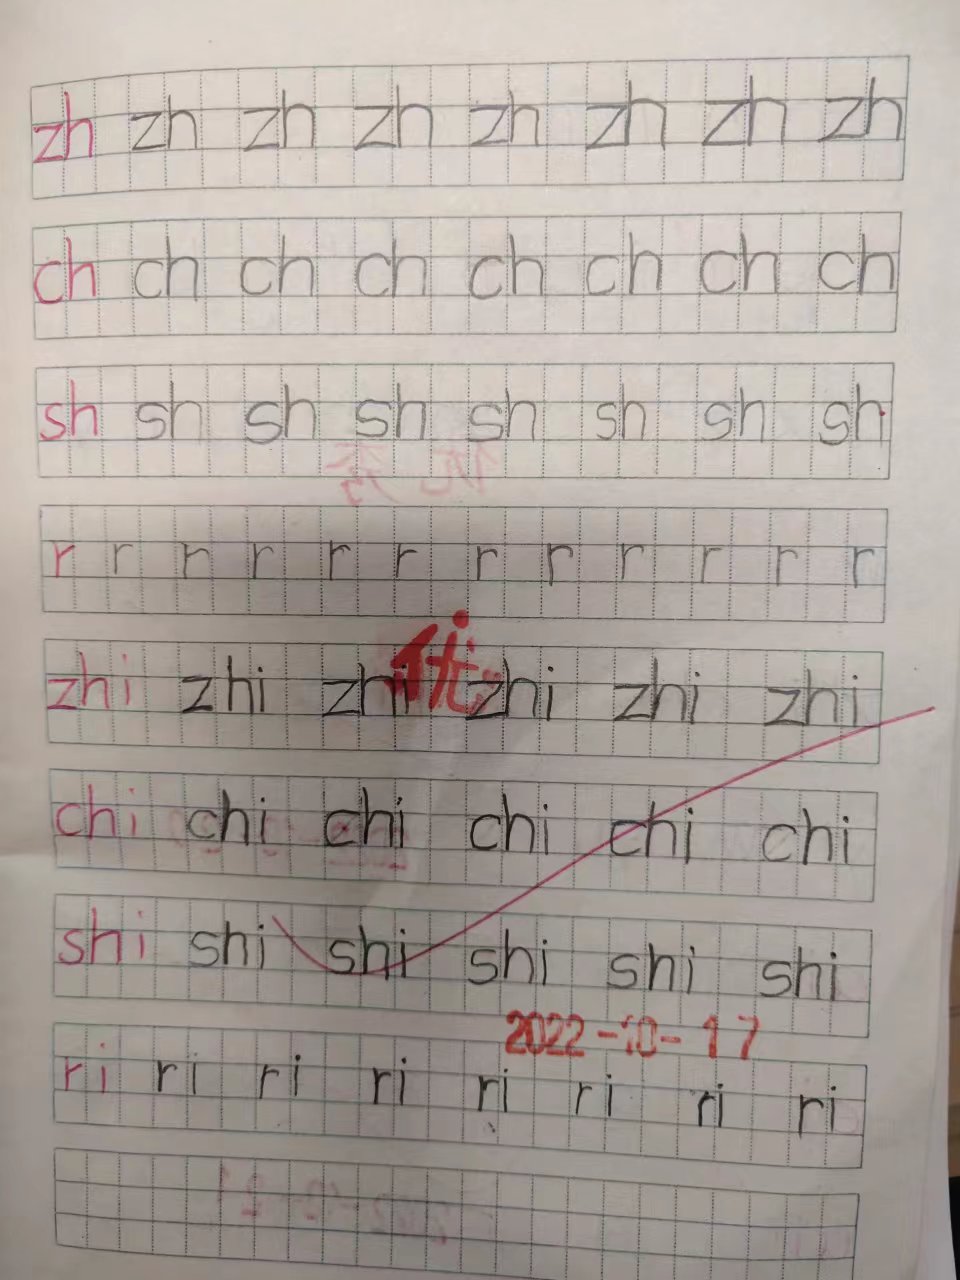 zh zh zh zh zh zh zh zh
ch ch ch ch ch ch ch ch
sh sh sh sh sh sh sh sh
r r r r r r r r r r r r
优
zhi zhi zhi zhi zhi zhi
chi chi chi chi chi chi
shi shi shi shi shi shi
2022-10-17
ri ri ri ri ri ri ri ri